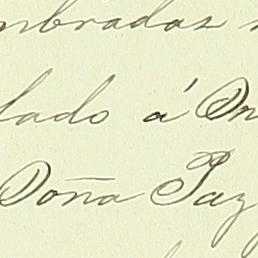 mbradas
lado á Dn
Doña Paz